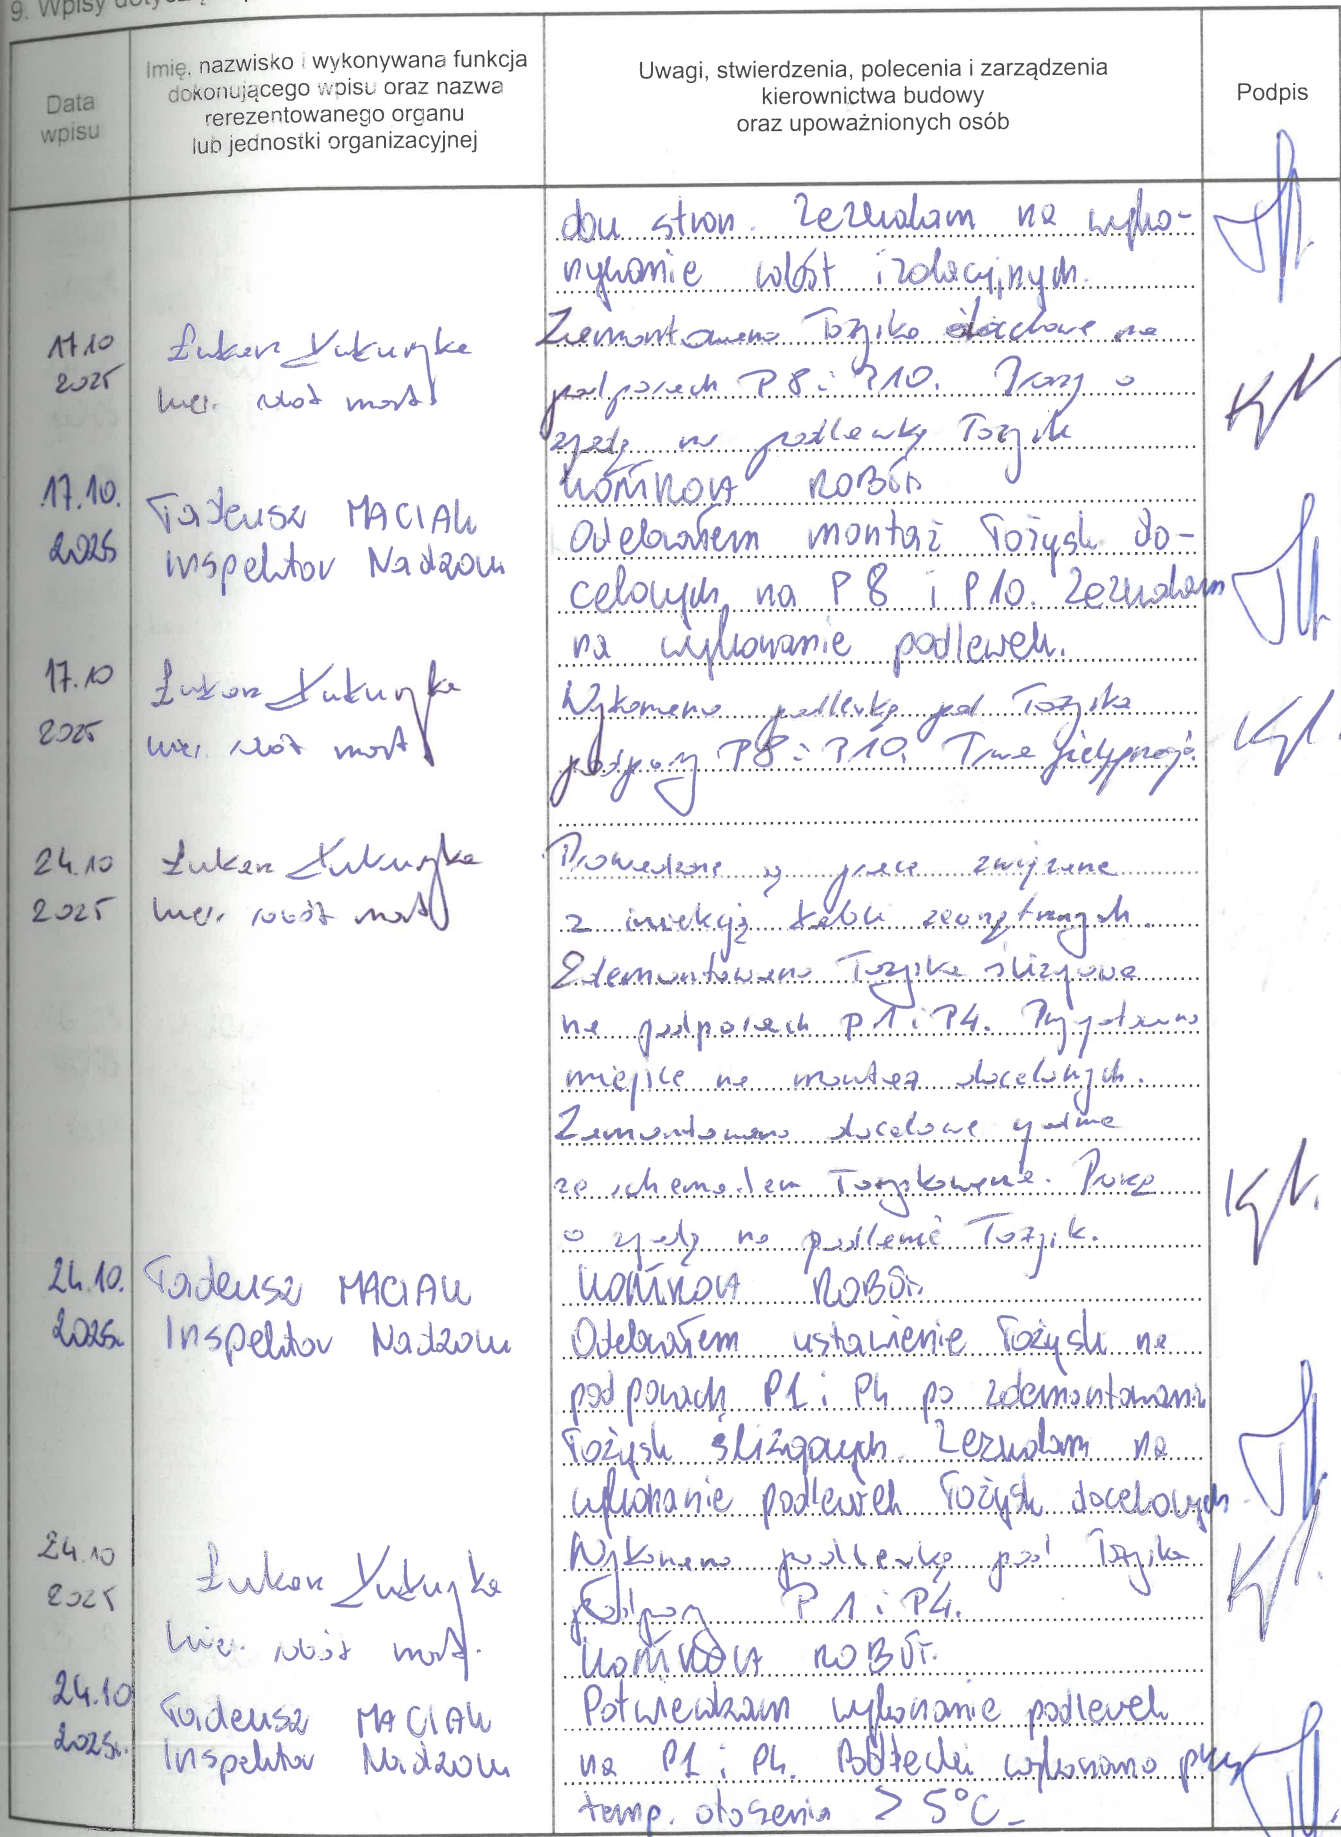 9. Wpisy
Data
wpisu
Imię, nazwisko i wykonywana funkcja
dokonującego wpisu oraz nazwa
rerezentowanego organu
lub jednostki organizacyjnej
Uwagi, stwierdzenia, polecenia i zarządzenia
kierownictwa budowy
oraz upoważnionych osób
Podpis
stron. Zezwalam na wyko-
nywanie robót izolacyjnych.
17.10
2025
Łukasz
kier. robót most.
Zamontowano łożyska docelowe na
podporach P8 i P10. Proszę o
zgodę na podlewkę łożysk
17.10.
2025
Tadeusz MACIAK
Inspektor Nadzoru
KONTROLA ROBÓT
Odebrałem montaż łożysk do-
celowych na P8 i P10. Zezwalam
na wykonanie podlewek.
17.10
2025
Łukasz
kier. robót most.
Wykonano podlewkę pod łożyska
podpory P8 i P10. Trwa pielęgnacja.
24.10
2025
Łukasz
kier. robót most.
Prowadzone są prace związane
z iniekcją kabli zewnętrznych.
Zdemontowano łożyska ślizgowe
na podporach P1 i P4. Przygotowano
miejsce na montaż docelowych.
Zamontowano docelowe zgodnie
ze schematem łożyskowania. Proszę
o zgodę na podlanie łożysk.
24.10.
2025r.
Tadeusz MACIAK
Inspektor Nadzoru
KONTROLA ROBÓT.
Odebrałem ustawienie łożysk na
podporach P1 i P4 po zdemontowaniu
łożysk ślizgowych. Zezwalam na
wykonanie podlewek łożysk docelowych.
24.10
2025
Łukasz
kier. robót most.
Wykonano podlewkę pod łożyska
podpory P1 i P4.
24.10
2025r.
Tadeusz MACIAK
Inspektor Nadzoru
KONTROLA ROBÓT.
Potwierdzam wykonanie podlewek
na P1 i P4. wykonano przy
temp. otoczenia > 5°C.